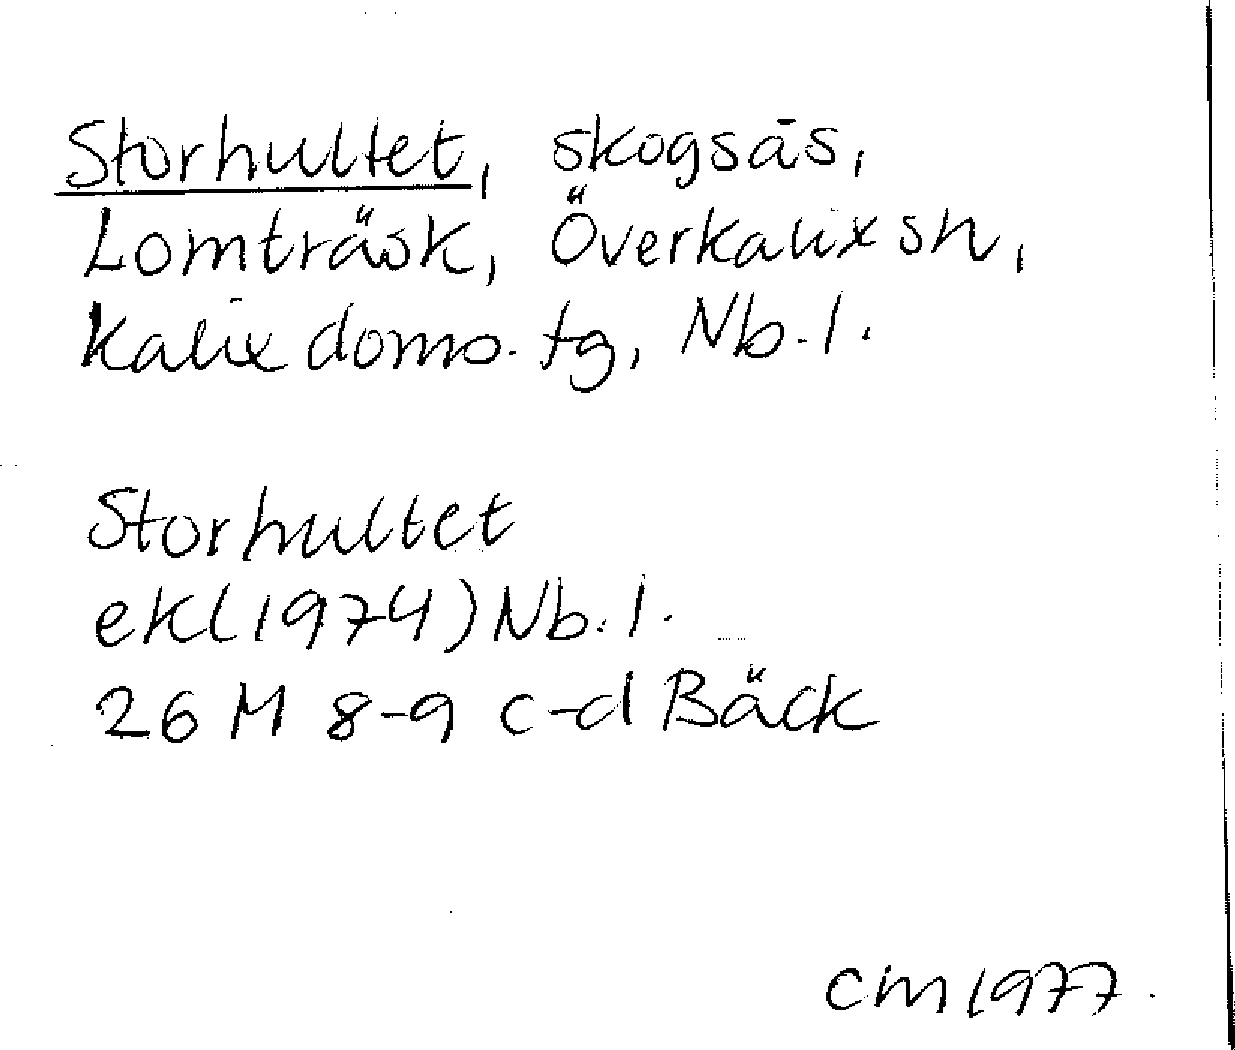 Storhultet, skogsås,
Lomträsk, Överkalix sn,
Kalix doms. tg, Nb. l.
Storhultet
ek (1974) Nb. l.
26 M 8-9 c-d Bäck
CM 1977.